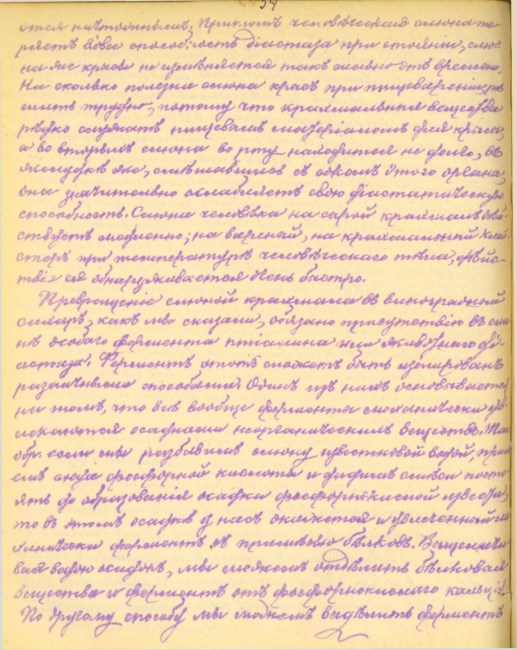 34
ется ничтожнымъ. Притомъ человѣческая слюна те-
ряетъ свою способность діастаза при стояніи, слю-
на же крысы не измѣняется такъ сильно отъ времени.
На сколько полезна слюна крысъ при пищевареніи рѣ-
шить трудно, потому что крахмальныя вещества
рѣдко служатъ пищевымъ матеріаломъ для крысы,
а во вторыхъ слюна во рту находится не долго, въ
желудкѣ же, смѣшавшись съ сокомъ этого органа,
она значительно ослабляетъ свою діастатическую
способность. Слюна человѣка на сырой крахмалъ дѣй-
ствуетъ медленно; на вареный, на крахмальный клей-
стеръ при температурѣ человѣческаго тѣла, дѣйс-
твіе ея обнаруживается очень быстро.
Превращеніе слюной крахмала въ виноградный
сахаръ, какъ мы сказали, обязано присутствію въ слю-
нѣ особаго фермента птіалина или животнаго ді-
астаза. Ферментъ этотъ можетъ быть изолированъ
различными способами. Одинъ изъ нихъ основывается
на томъ, что всѣ вообще ферменты механически ув-
лекаются осадками неорганическихъ веществъ. Так.
обр. если мы разбавивъ слюну известковой водой, прильемъ
сюда фосфорной кислоты и дадимъ смѣси посто-
ять до образованія осадка фосфорнокислой извести,
то въ этомъ осадкѣ у насъ окажется и увлеченный ме-
ханически ферментъ съ примѣсью бѣлковъ. Выщелачи-
вая водою осадокъ, мы можемъ отдѣлить бѣлковыя
вещества и ферментъ отъ фосфорнокислаго кальція.
По другому способу мы можемъ выдѣлить ферментъ